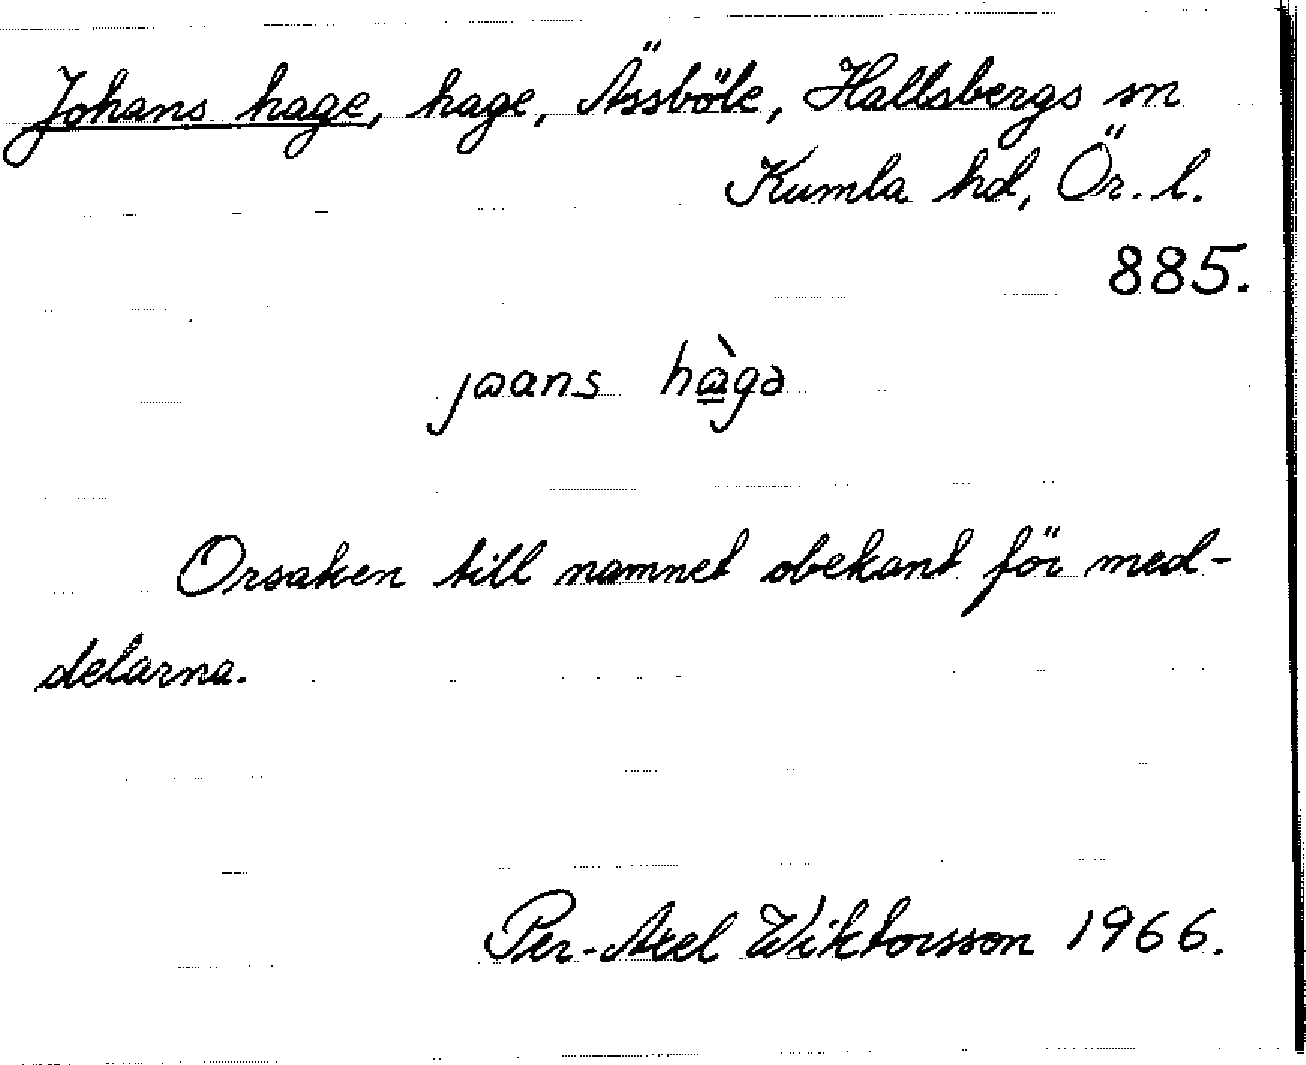 Johans hage, hage, Ässböle, Hallsbergs sn
Kumla hd, Ör. l.
885.
jɷans hɷ̲̀gə
Orsaken till namnet obekant för med-
delarna.
Per-Axel Wiktorsson 1966.